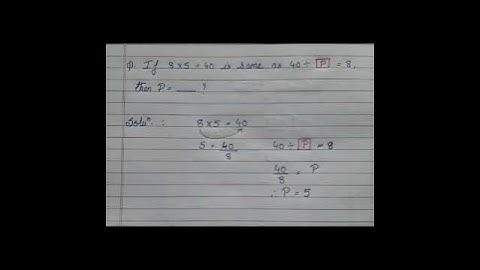 Q. If 8×5 = 40 is same as 40 ÷ P = 8,
then P = ___ ?
Soluⁿ. : 8×5 = 40
5 = 40/8 40 ÷ P = 8
40/8 = P
∴ P = 5